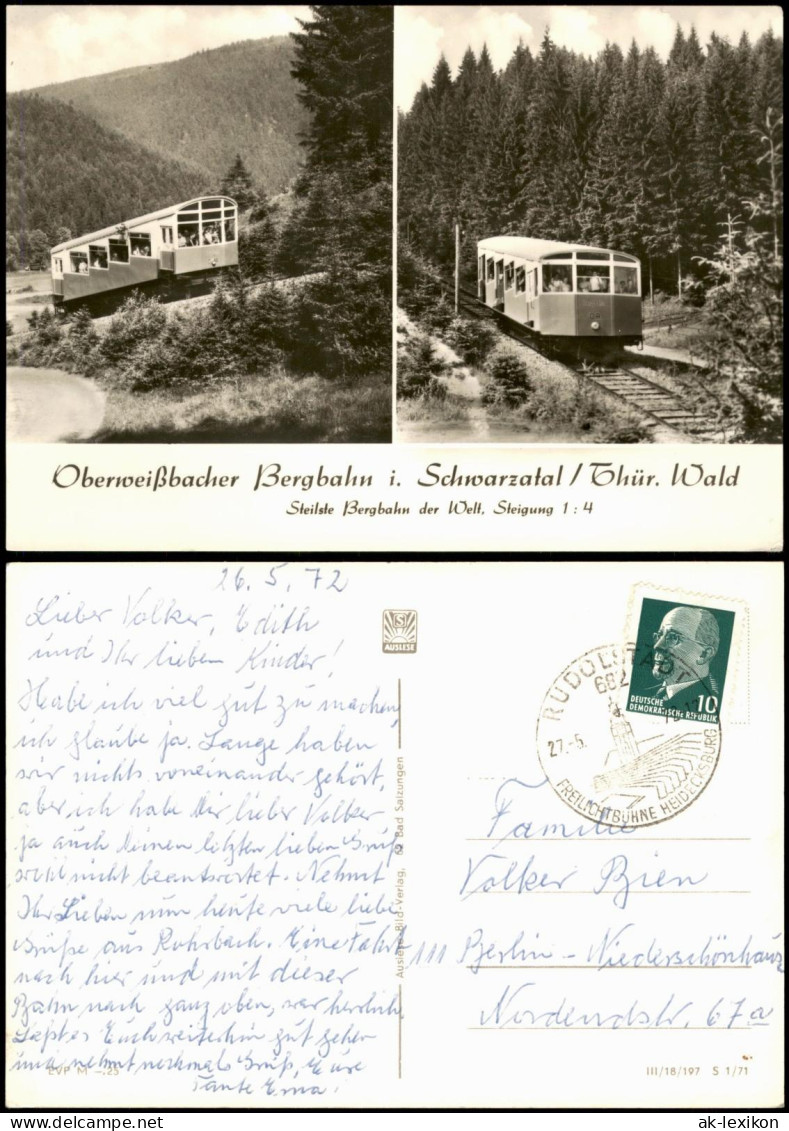 Oberweißbacher Bergbahn i. Schwarzatal / Thür. Wald
Steilste Bergbahn der Welt, Steigung 1 : 4
26. 5. 72
Lieber Volker, Edith
und Ihr lieben Kinder!
Habe ich viel gut zu machen,
ich glaube ja. Lange haben
wir nichts voneinander gehört,
aber ich habe Dir lieber Volker
ja auch Deinen letzten lieben Gruß
wohl nicht beantwortet. Nehmt
Ihr Lieben nun heute viele liebe
Grüße aus Rohrbach. Eine Fahrt
nach hier und mit dieser
Bahn nach ganz oben, war herrlich.
Laßt es Euch weiterhin gut gehen
und nehmt nochmals Grüß, Eure
Tante Erna.
EVP M –,25
AUSLESE
Auslese-Bild-Verlag, 62 Bad Salzungen
RUDOLSTADT
682
27.-5.
FREILICHTBÜHNE HEIDECKSBURG
10
DEUTSCHE
DEMOKRATISCHE REPUBLIK
Familie
Volker Bien
111 Berlin - Niederschönhauz
Nordendstr. 67a
III/18/197 S 1/71
ak-lexikon.com